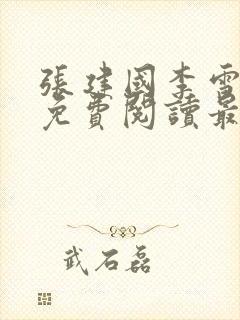 張建國李雪
免費閱讀最
武石磊